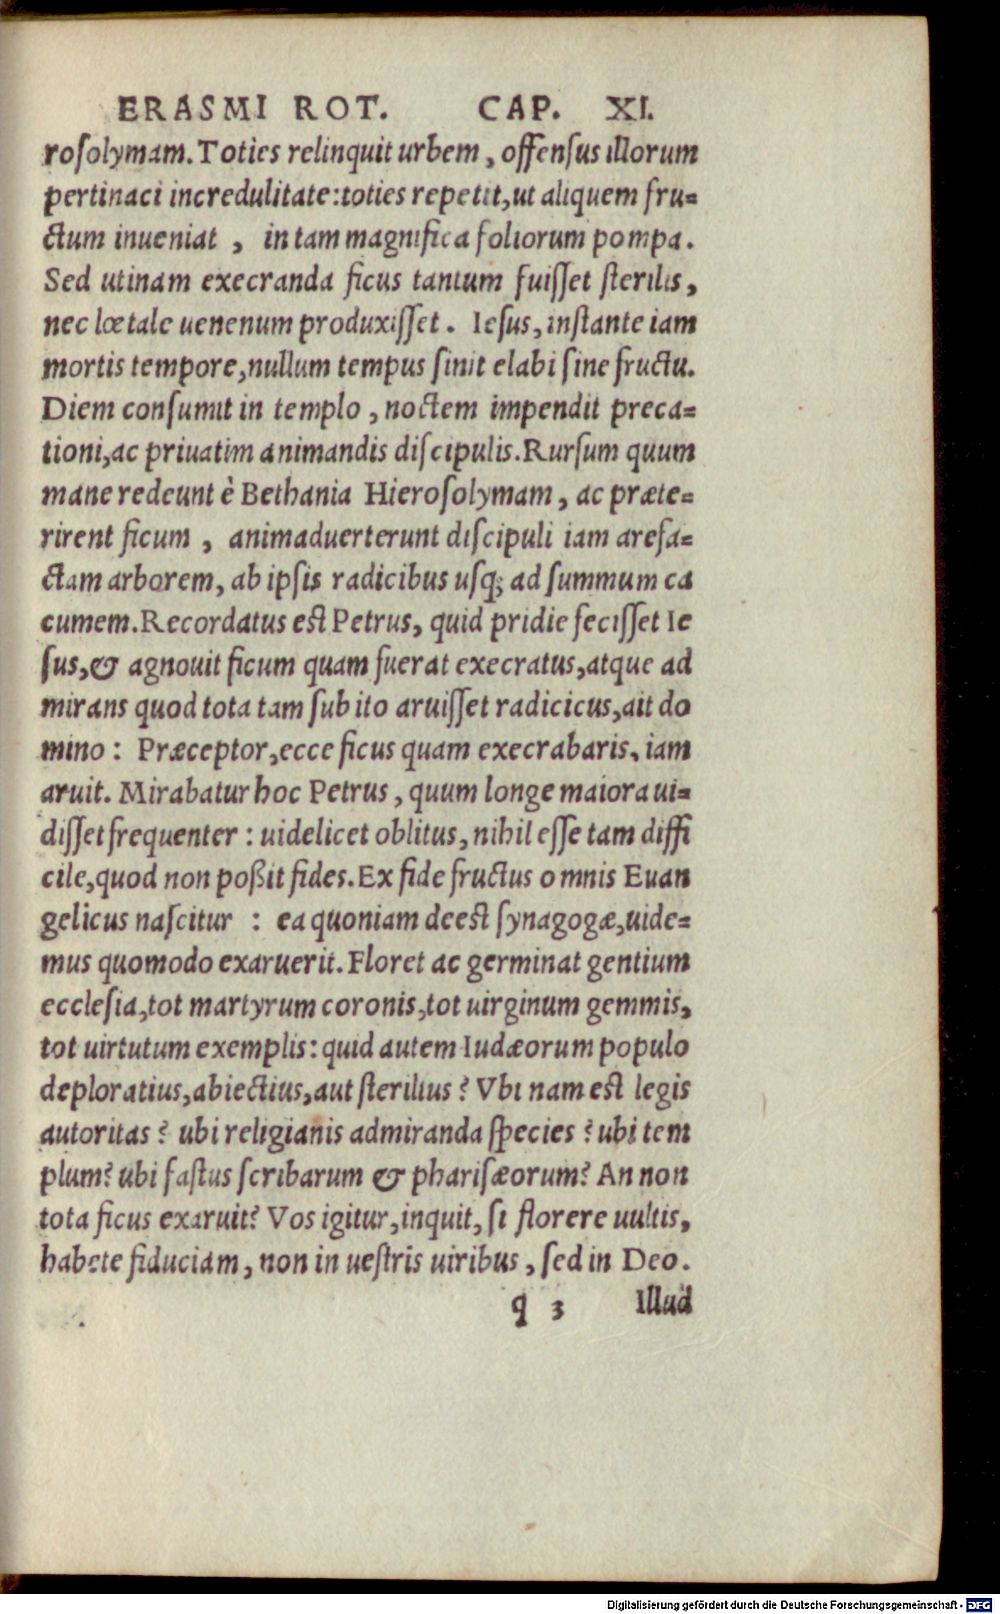 ERASMI ROT. CAP. XI.
rosolymam. Toties relinquit urbem, offensus illorum
pertinaci incredulitate: toties repetit, ut aliquem fru=
ctum inueniat, in tam magnifica foliorum pompa.
Sed utinam execranda ficus tantum fuisset sterilis,
nec lœtale uenenum produxisset. Iesus, instante iam
mortis tempore, nullum tempus sinit elabi sine fructu.
Diem consumit in templo, noctem impendit preca=
tioni, ac priuatim animandis discipulis. Rursum quum
mane redeunt è Bethania Hierosolymam, ac præte=
rirent ficum, animaduerterunt discipuli iam arefa=
ctam arborem, ab ipsis radicibus usq; ad summum ca
cumem. Recordatus est Petrus, quid pridie fecisset Ie
sus, & agnouit ficum quam fuerat execratus, atque ad
mirans quod tota tam subito aruisset radicicus, ait do
mino: Præceptor, ecce ficus quam execrabaris, iam
aruit. Mirabatur hoc Petrus, quum longe maiora ui=
disset frequenter: uidelicet oblitus, nihil esse tam diffi
cile, quod non poßit fides. Ex fide fructus omnis Euan
gelicus nascitur: ea quoniam deest synagogæ, uide=
mus quomodo exaruerit. Floret ac germinat gentium
ecclesia, tot martyrum coronis, tot uirginum gemmis,
tot uirtutum exemplis: quid autem Iudæorum populo
deploratius, abiectius, aut sterilius? Vbi nam est legis
autoritas? ubi religianis admiranda species? ubi tem
plum? ubi fastus scribarum & pharisæorum? An non
tota ficus exaruit? Vos igitur, inquit, si florere uultis,
habete fiduciam, non in uestris uiribus, sed in Deo.
q 3 Illud
Digitalisierung gefördert durch die Deutsche Forschungsgemeinschaft - DFG